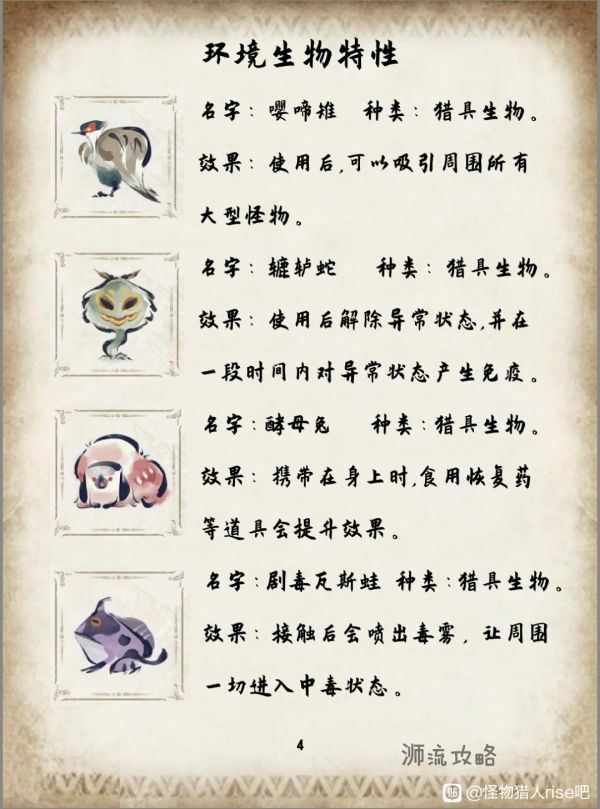 环境生物特性
名字：嘤啼雉 种类：猎具生物。
效果：使用后,可以吸引周围所有
大型怪物。
名字：辘轳蛇 种类：猎具生物。
效果：使用后解除异常状态,并在
一段时间内对异常状态产生免疫。
名字：酵母兔 种类：猎具生物。
效果：携带在身上时,食用恢复药
等道具会提升效果。
名字：剧毒瓦斯蛙 种类：猎具生物。
效果：接触后会喷出毒雾，让周围
一切进入中毒状态。
4
浉流攻略
贴 @怪物猎人rise吧